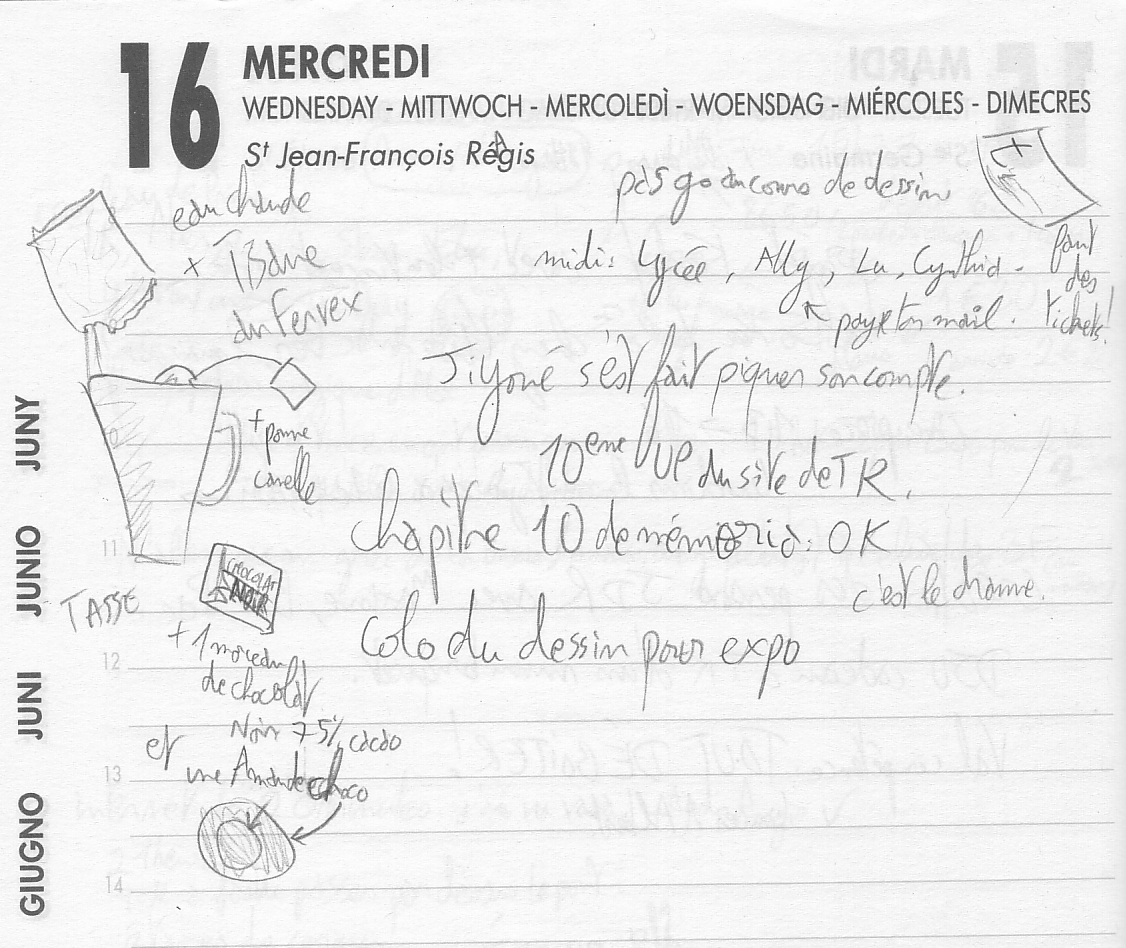 16
MERCREDI
WEDNESDAY - MITTWOCH - MERCOLEDÌ - WOENSDAG - MIÉRCOLES - DIMECRES
St Jean-François Régis
pas go au cours de dessin
eau chaude
+ Tisane
du Fervex
midi: lycée, Ally, Lu, Cynthia.
faut
des
tickets!
payer ton mail.
Jiyone s'est fait piquer son compte.
+ pomme
canelle
10eme UP du site de TR.
chapitre 10 de mémoria: OK
c'est le drame.
TASSE
CHOCOLAT
NOIR
+ 1 morceau
de chocolat
Noir 75% cacao
colo du dessin pour expo
et
une Amande choco
11
12
13
14
GIUGNO JUNI JUNIO JUNY